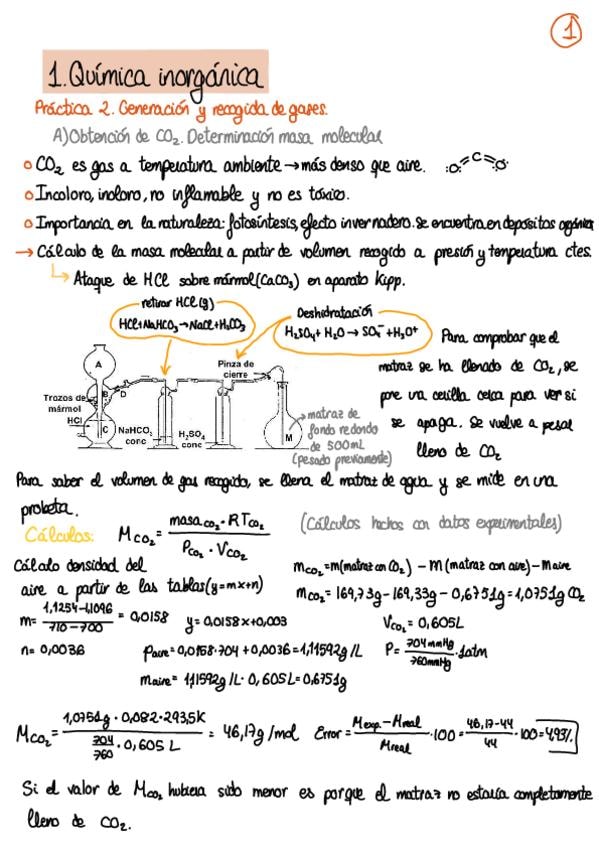 1
1. Química inorgánica
Práctica 2. Generación y recogida de gases.
A) Obtención de CO₂. Determinación masa molecular
○ CO₂ es gas a temperatura ambiente → más denso que aire. :O=C=O:
○ Incoloro, inoloro, no inflamable y no es tóxico.
○ Importancia en la naturaleza: fotosíntesis, efecto invernadero. Se encuentra en depósitos
→ Cálculo de la masa molecular a partir de volumen recogido a presión y temperatura ctes.
↳ Ataque de HCl sobre mármol (CaCO₃) en aparato Kipp.
retirar HCl (g)
HCl + NaHCO₃ → NaCl + H₂CO₃
Deshidratación
H₂SO₄ + H₂O → SO₄⁻ + H₃O⁺
A
B
D
C
Trozos de
mármol
HCl
NaHCO₃
conc
H₂SO₄
conc
Pinza de
cierre
M
matraz de
fondo redondo
de 500mL
(pesado previamente)
Para comprobar que el
matraz se ha llenado de CO₂, se
pre una cerilla cerca para ver si
se apaga. Se vuelve a pesar
lleno de CO₂
Para saber el volumen de gas recogido, se llena el matraz de agua y se mide en una
probeta.
Cálculos: M CO₂ = masa CO₂ · R T CO₂ / P CO₂ · V CO₂ (Cálculos hechos con datos experimentales)
Cálculo densidad del
aire a partir de las tablas (y=mx+n)
m= 1,1254-1,1096 / 710-700 = 0,0158 y= 0,0158x+0,003
n= 0,0036 ρaire = 0,0158·704 + 0,0036 = 1,11592g/L
maire = 1,11592g/L · 0,605L = 0,6751g
m CO₂ = m(matraz con CO₂) - M (matraz con aire) - Maire
m CO₂ = 169,73g - 169,33g - 0,6751g = 1,0751g CO₂
V CO₂ = 0,605L
P = 704mmHg / 760mmHg · 1atm
M CO₂ = 1,0751g · 0,082 · 293,5K / 704/760 · 0,605 L = 46,17g/mol Error = Mexp. - Mreal / Mreal · 100 = 46,17-44 / 44 · 100 = 4,93%
Si el valor de M CO₂ hubiera sido menor es porque el matraz no estaría completamente
lleno de CO₂.